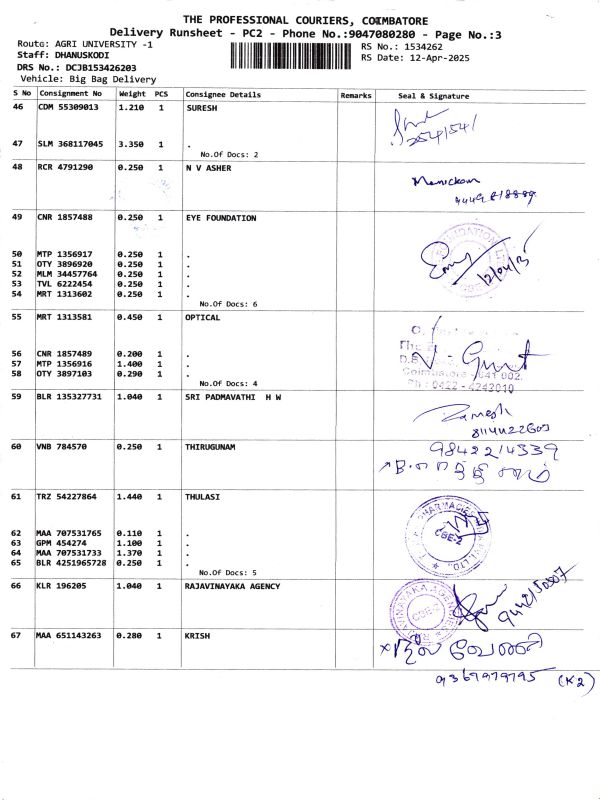 THE PROFESSIONAL COURIERS, COIMBATORE
Delivery Runsheet - PC2 - Phone No.:9047080280 - Page No.:3
Route: AGRI UNIVERSITY -1
Staff: DHANUSKODI
DRS No.: DCJB153426203
Vehicle: Big Bag Delivery
RS No.: 1534262
RS Date: 12-Apr-2025
S No Consignment No Weight PCS Consignee Details Remarks Seal & Signature
46 CDM 55309013 1.210 1 SURESH
47 SLM 368117045 3.350 1 .
No.Of Docs: 2
48 RCR 4791290 0.250 1 N V ASHER
Manickam
49 CNR 1857488 0.250 1 EYE FOUNDATION
50 MTP 1356917 0.250 1 .
51 OTY 3896920 0.250 1 .
52 MLM 34457764 0.250 1 .
53 TVL 6222454 0.250 1 .
54 MRT 1313602 0.250 1 .
No.Of Docs: 6
12/04/25
55 MRT 1313581 0.450 1 OPTICAL
56 CNR 1857489 0.200 1 .
57 MTP 1356916 1.400 1 .
58 OTY 3897103 0.290 1 .
No.Of Docs: 4
Coimbatore - 641 002.
Ph : 0422 - 4242010
59 BLR 135327731 1.040 1 SRI PADMAVATHI H W
Ramesh
60 VNB 784570 0.250 1 THIRUGUNAM
9842214339
61 TRZ 54227864 1.440 1 THULASI
62 MAA 707531765 0.110 1 .
63 GPM 454274 1.100 1 .
64 MAA 707531733 1.370 1 .
65 BLR 4251965728 0.250 1 .
No.Of Docs: 5
CBE-2
66 KLR 196205 1.040 1 RAJAVINAYAKA AGENCY
RAJAVINAYAKA AGENCY
CBE-2
67 MAA 651143263 0.280 1 KRISH
9367979795 (K2)